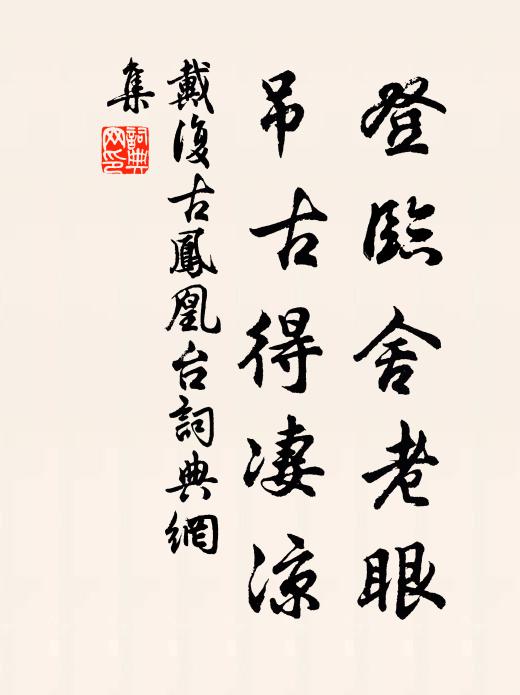 登臨舍老眼
吊古得淒涼
戴復古鳳凰台詞典網
集
詞典網印